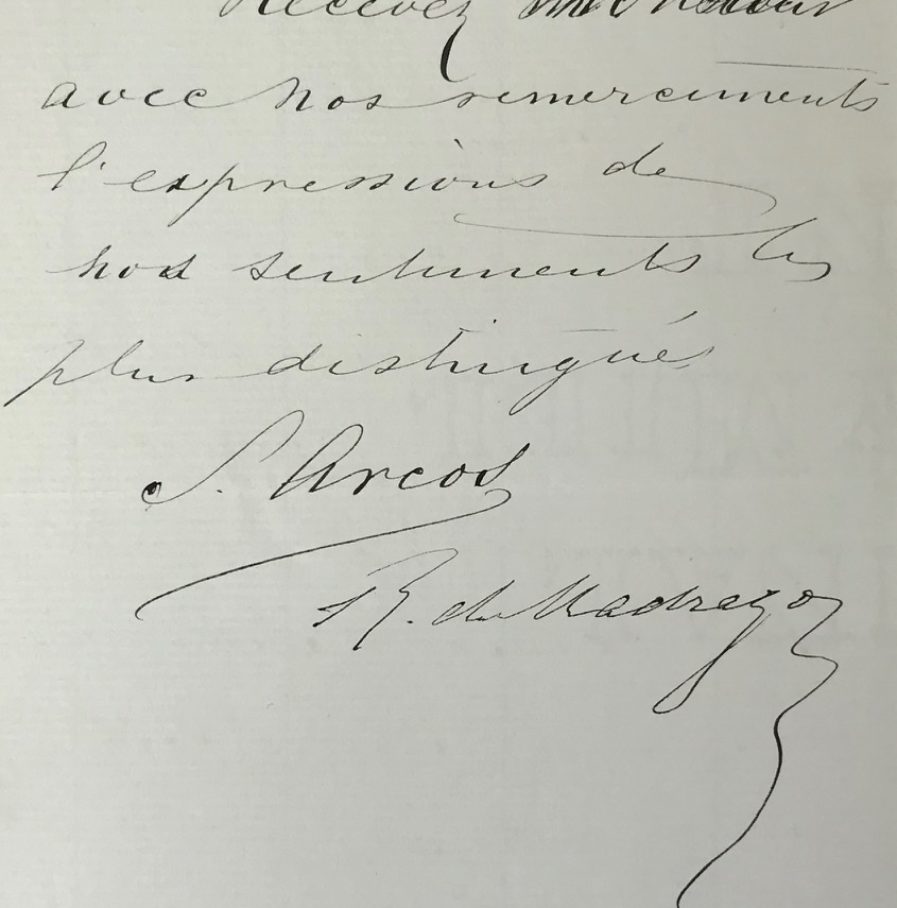 Recevez Monsieur
avec nos remerciments
l'expressions de
nos sentiments les
plus distingués
S. Arcos
R. de Madrazo